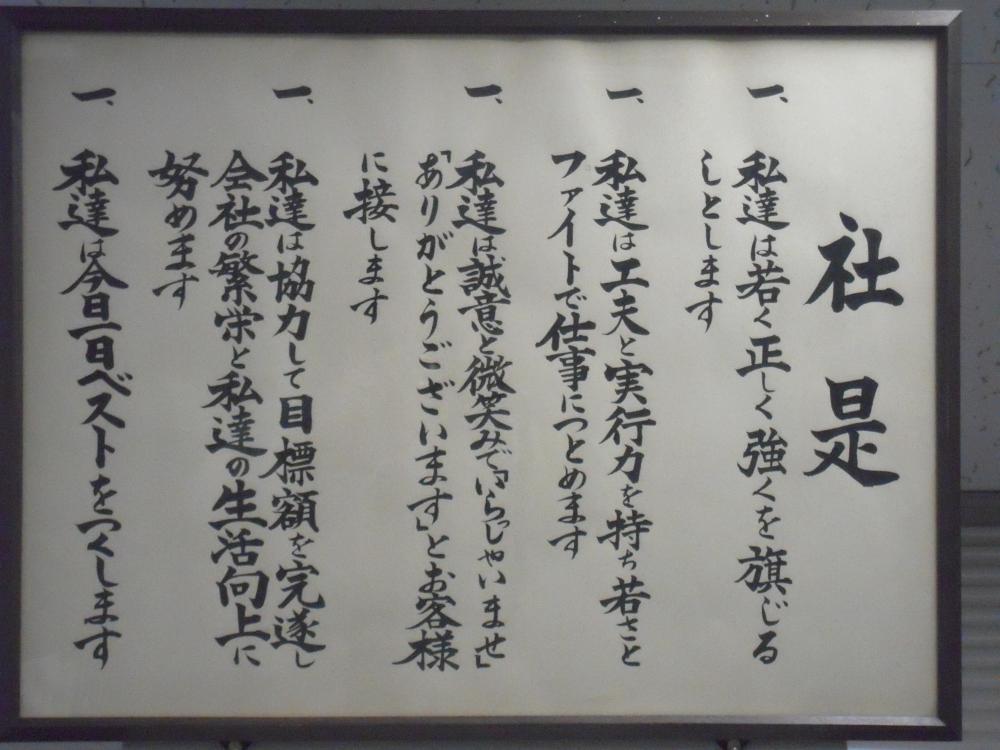 社是
一、私達は若く正しく強くを旗じる
しとします
一、私達は工夫と実行力を持ち若さと
ファイトで仕事につとめます
一、私達は誠意と微笑みで「いらっしゃいませ」
「ありがとうございます」とお客様
に接します
一、私達は協力して目標額を完遂し
会社の繁栄と私達の生活向上に
努めます
一、私達は今日一日ベストをつくします